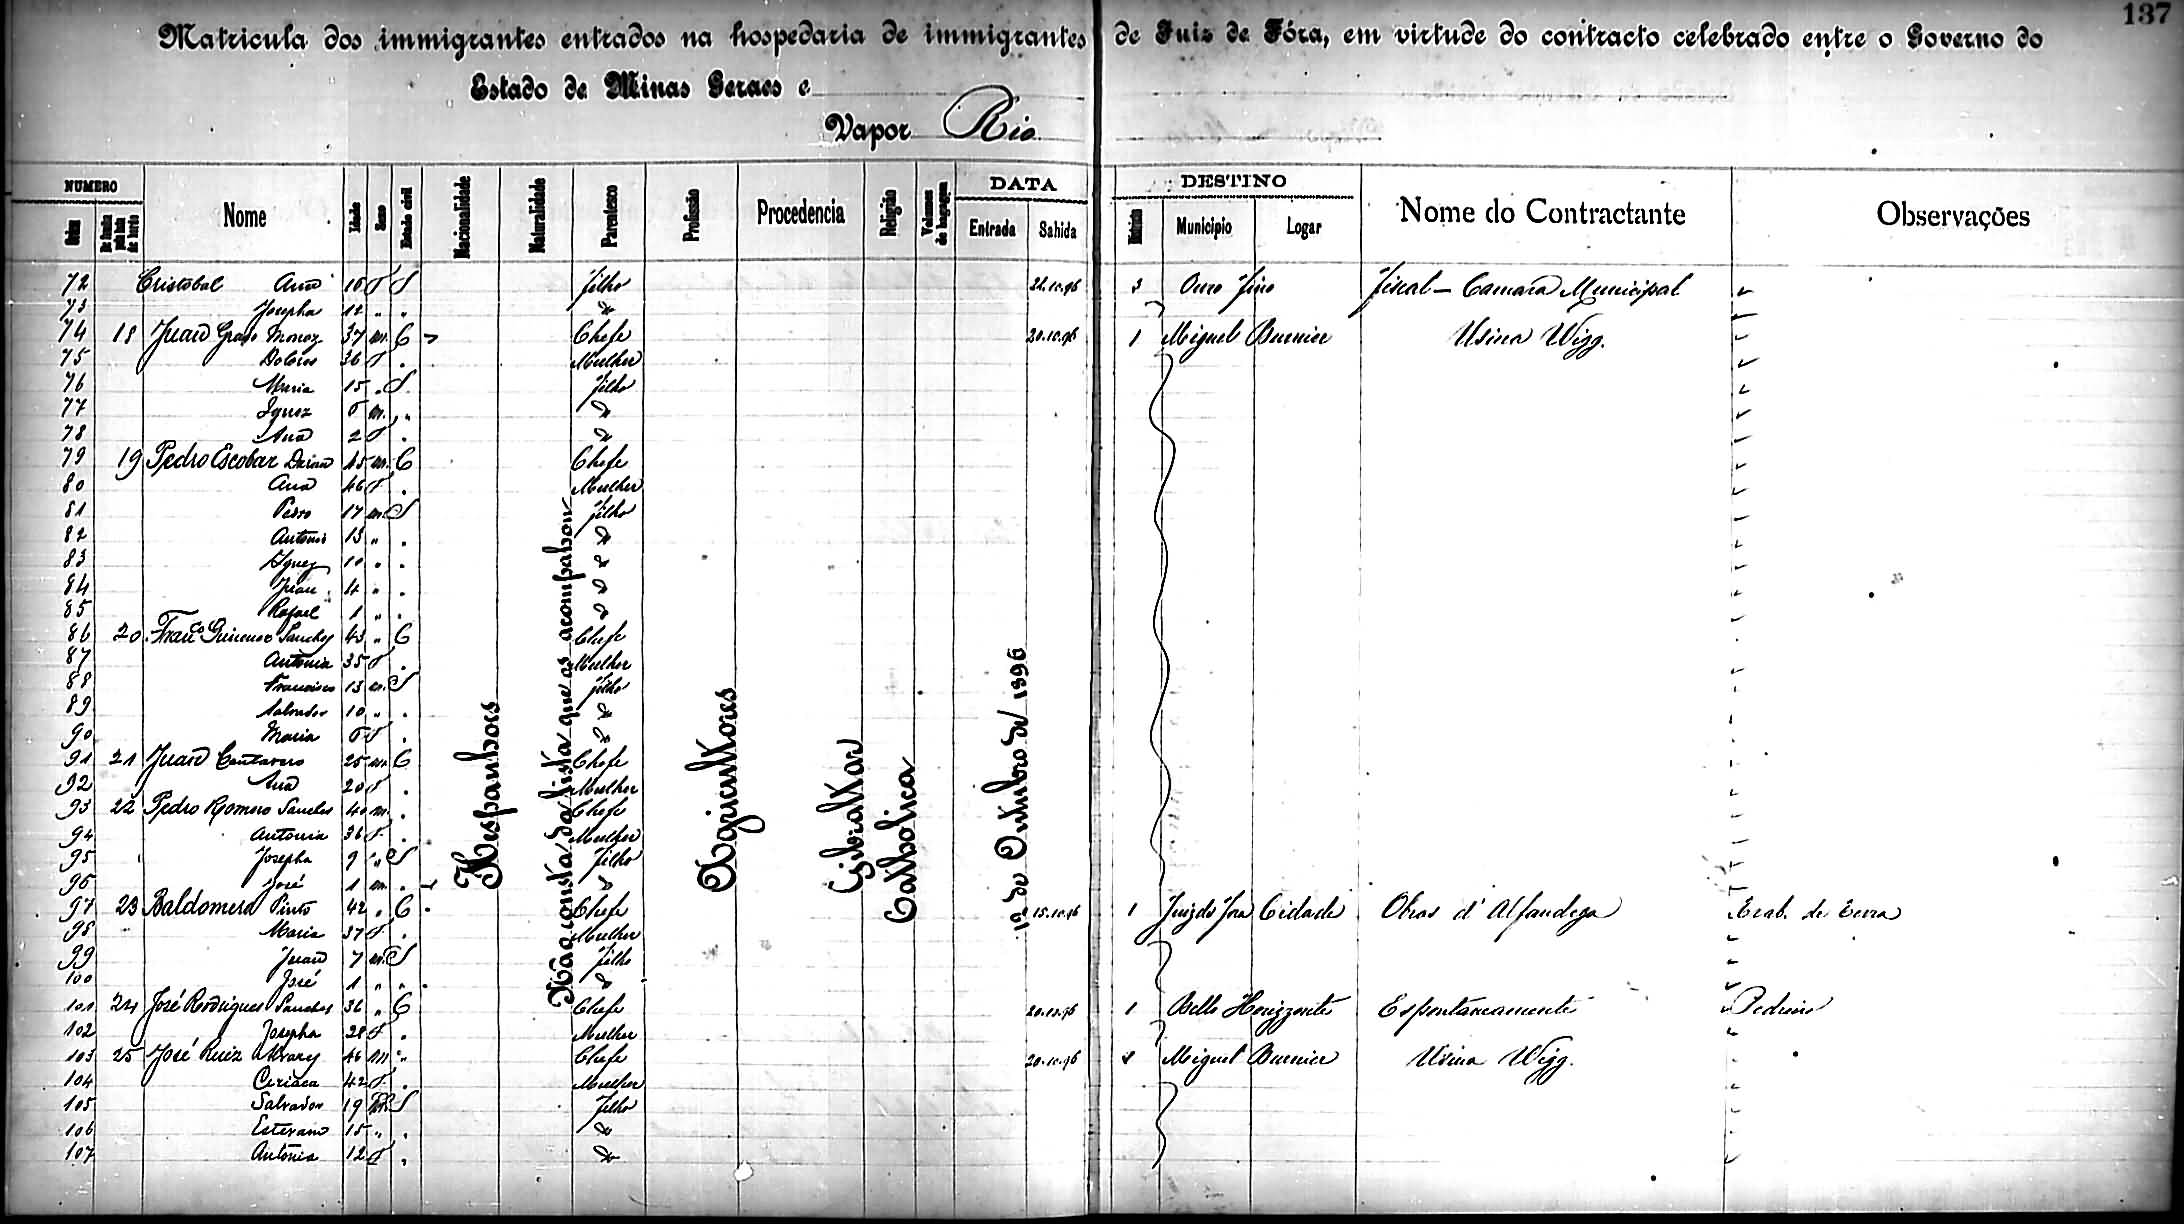 137
Matricula dos immigrantes entrados na hospedaria de immigrantes de Juiz de Fóra, em virtude do contracto celebrado entre o Governo do
Estado de Minas Geraes e
Vapor Rio
NUMERO DATA DESTINO
Ordem Nome Idade Sexo Estado civil Nacionalidade Naturalidade Parentesco Profissão Procedencia Religião Volumes de bagagem Entrada Sahida Districto Municipio Logar Nome do Contractante Observações
72 Cristobal Ana 16 F S Filho 3 Ouro Fino Fiscal - Camara Municipal
73 Josepha 12 " "
74 18 Juan Monoz 37 m. C Chefe 20.10.96 1 Miguel Burnier Usina Wigg.
75 Dolores 36 F . Mulher
76 Maria 15 . S Filho
77 Ignez m. "
78 Ana 2 F .
79 19 Pedro Escobar 45 m. C Chefe
80 Ana 46 F . Mulher
81 Pedro 17 m. S Filho
82 Antonio 13 " .
83 Ignez 10 " .
84 Juan 4 " .
85 Rafael 1 " .
86 20 Franco Gimenez Sanchez 43 " C Chefe
87 Antonia 35 F . Mulher
88 Francisco 13 m. S Filho
89 Salvador 10 " .
90 Maria F .
91 21 Juan Cantavero 25 m. C Chefe
92 Ana 20 F . Mulher
93 22 Pedro Romero Sanches 40 m. . Chefe
94 Antonia 36 F . Mulher
95 Josepha 9 " S Filho
96 José 1 m. .
97 23 Baldomero Pinto 42 " C Chefe 15.10.96 1 Juiz de Fora Cidade Obras d'Alfandega Trab. de terra
98 Maria 37 F . Mulher
99 Juan 7 m. S Filho
100 José 1 " "
101 24 José Rodrigues Sanches 36 " C Chefe 20.10.96 1 Bello Horizzonte Espontaneamente Pedreiro
102 Josepha 28 F . Mulher
103 25 José Ruiz Alvarez 46 m. " Chefe 20.10.96 Miguel Burnier Usina Wigg.
104 Ciriaca 42 F . Mulher
105 Salvador 19 m. S Filho
106 Estevam 15 " .
107 Antonia 12 F .
Hespanhoes
Não consta da lista que os acompanhou
Agricultores
Gibraltar
Catholica
12 de Outubro de 1896